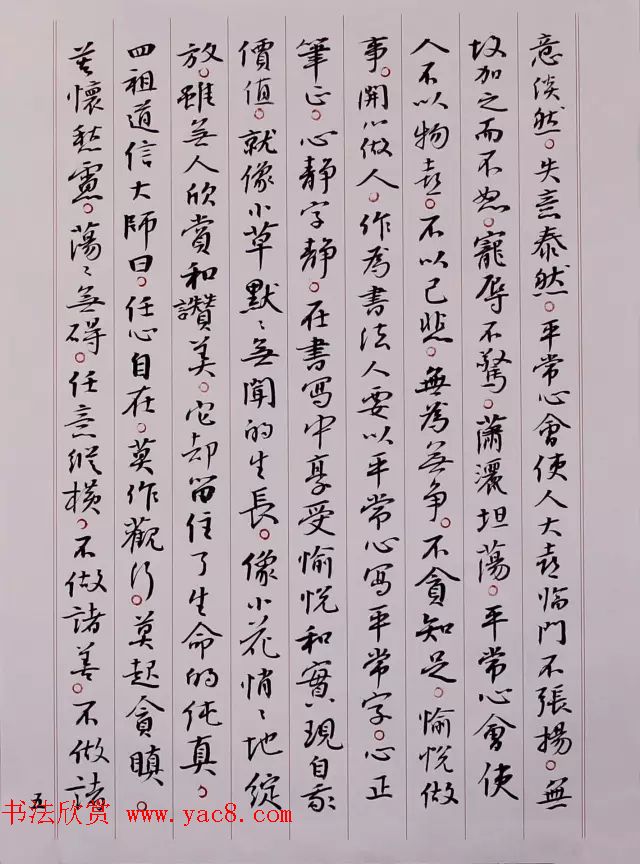 意淡然。失意泰然。平常心會使人大喜臨門不張揚。無
故加之而不怒。寵辱不驚。蕭灑坦蕩。平常心會使
人不以物喜。不以己悲。無為無争。不貪知足。愉悅做
事。開心做人。作為書法人要以平常心寫平常字。心正
筆正。心靜字靜。在書寫中享受愉悅和實現自我
價值。就像小草默〻無聞的生長。像小花悄〻地綻
放。雖無人欣賞和讚美。它却留住了生命的純真。
四祖道信大師曰。任心自在。莫作觀行。莫起貪瞋。
莫懷愁慮。蕩〻無碍。任意縱横。不做諸善。不做諸
五
书法欣赏 www.yac8.com